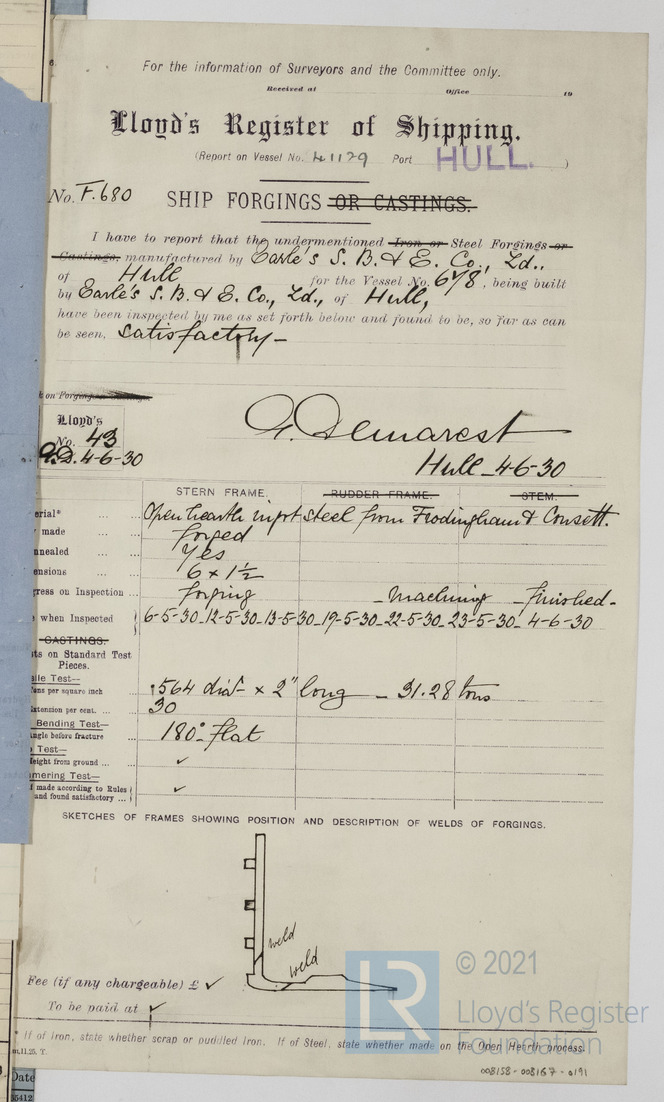 For the information of Surveyors and the Committee only.
Received at Office 19
Lloyd's Register of Shipping.
(Report on Vessel No. 41179 Port HULL. )
No. F.680
SHIP FORGINGS OR CASTINGS.
I have to report that the undermentioned Iron or Steel Forgings or
Castings, manufactured by Earle's S. B. & E. Co., Ld.,
of Hull for the Vessel No. 678, being built
by Earle's S. B. & E. Co., Ld., of Hull,
have been inspected by me as set forth below and found to be, so far as can
be seen, satisfactory-
t on Forging or Castings.
Lloyd's
No. 43
G.D. 4-6-30
G. Demarest
Hull 4-6-30
STERN FRAME. RUDDER FRAME. STEM.
erial* Open hearth ingot steel from Frodingham & Consett.
made forged
nnealed Yes
ensions 6 x 1½
gress on Inspection forging - Machining - finished-
when Inspected 6-5-30-12-5-30-13-5-30-19-5-30-22-5-30-23-5-30-4-6-30
CASTINGS.
ts on Standard Test
Pieces.
sile Test—
Tons per square inch .564 diar x 2" long - 31.28 tons
Extension per cent. 30
Bending Test—
Angle before fracture 180° flat
Test—
Height from ground ✓
mmering Test—
f made according to Rules
and found satisfactory ✓
SKETCHES OF FRAMES SHOWING POSITION AND DESCRIPTION OF WELDS OF FORGINGS.
weld
weld
Fee (if any chargeable) £ ✓
To be paid at ✓
* If of Iron, state whether scrap or puddled Iron. If of Steel, state whether made on the Open Hearth process.
m.11.25. T.
008158-008167-0191
Date
55412
LR
© 2021
Lloyd's Register
Foundation